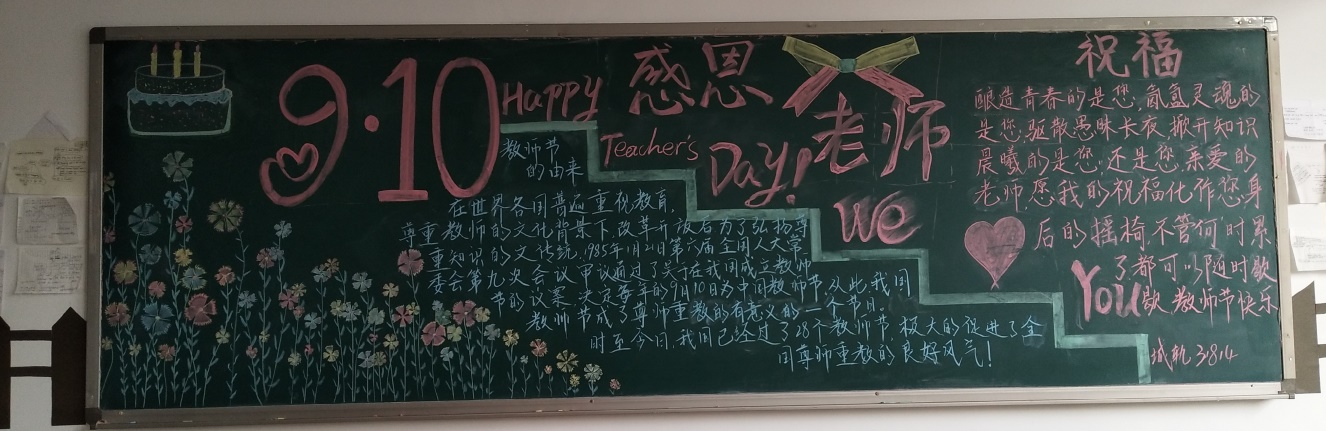 9·10
Happy
Teacher's
Day!
感恩
老师
we
You
教师节
的由来
在世界各国普遍重视教育,
尊重教师的文化背景下,改革开放后为了弘扬尊
重知识的文化传统,1985年1月21日第六届全国人大常
委会第九次会议审议通过了关于在我国成立教师
节的议案,决定每年的9月10日为中国教师节,从此我国
教师节成了尊师重教的有意义的一个节日。
时至今日,我国已经过了28个教师节,极大的促进了全
国尊师重教的良好风气!
祝福
酿造青春的是您,氤氲灵魂的
是您,驱散愚昧长夜,掀开知识
晨曦的是您,还是您,亲爱的
老师,愿我的祝福化作您身
后的摇椅,不管何时累
了都可以随时歇
歇,教师节快乐
城轨3814